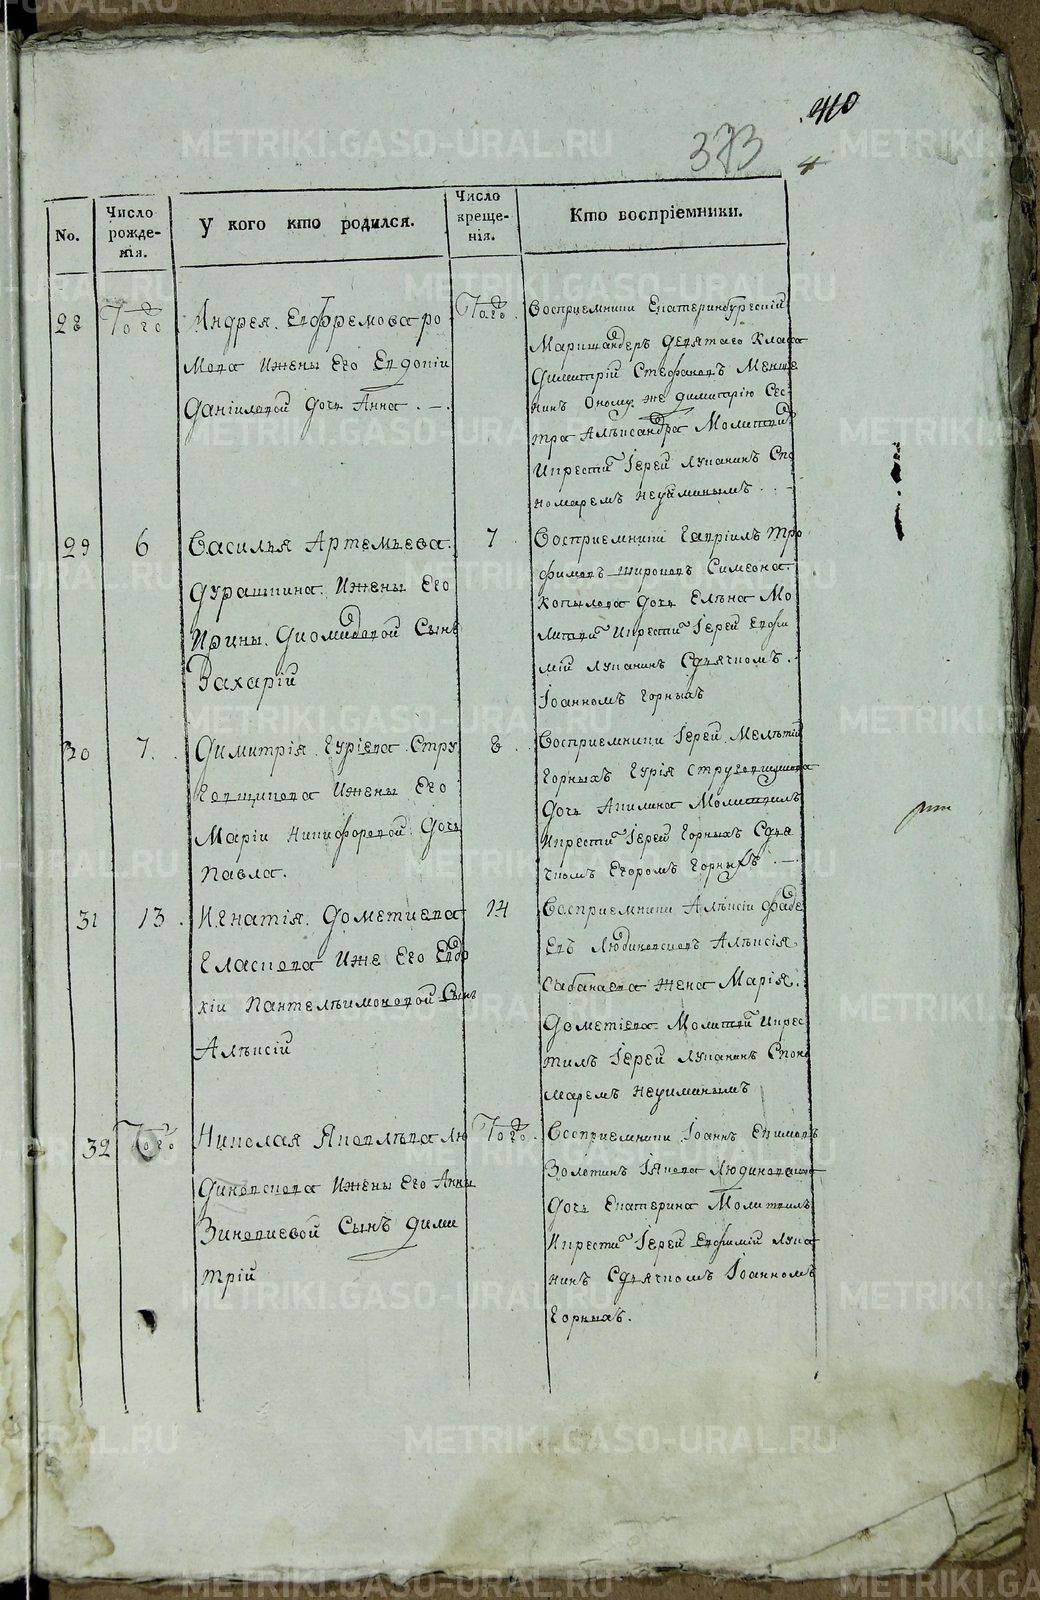 410
373
4
No.
Число рожде-нія.
У кого кто родился.
Число креще-нія.
Кто воспріемники.
28
Того
Андрея Евфремова ро
мова Ижены Его Евдокіи
Даніиловой Дочь Анна . —.
Того.
Восприемники Екатеринбургскій
Маркшандеръ Девятаго Класа
Димитрій Стефановъ Менше
нинъ Оному же Димитрію Сес-
тра Алѣксандра Молитвил
Икрестил Іерей Лупанинъ Спо
номаремъ Неуйминымъ . . —
29
6
Василья Артемьева.
Дурашкина. Ижены Его
Ирины. Диомидовой Сынъ
Захарій
7
Восприемники Гавріилъ Тро
фимовъ Широковъ Симеона
Копылова Дочь Елѣна Мо
литвил Икрестил Іерей Евфи
мій Лупанинъ Сдьячкомъ.
Іоанномъ Горныхъ
30
7.
Димитрія. Гуріева. Стру
говщикова Ижены Его
Маріи Никифоровой Дочь
Павла.
8
Восприемники Іерей Мелѣтій
Горныхъ Гурія Струговщикова
Дочь Акилина Молитвилъ
Икрестил Іерей Горныхъ Сдья
чкомъ Егоромъ Горныхъ . —.
31
13
Игнатія. Дометиева
Гласкова Иже Его Евдо
кіи Пантелѣимоновой Сынъ
Алѣксій
14
Восприемники Алѣксій Фаде
евъ Людиновсковъ Алѣксія
Сабанаева Жена Марія.
Дометіева Молитвил Икрес
тилъ Іерей Лупанинъ Споно
маремъ Неуйминымъ
32
Того
Николая Яковлѣва Лю
диновскова Ижены Его Анны
Зиновиевой Сынъ Дими
трій
Того.
Восприемники Іоаннъ Екимовъ
Золотинъ Іякова Людиновскова
Дочь Екатерина Молитвилъ
Икрестил Іерей Евфимій Лупа
нинъ Сдьячкомъ Іоанномъ
Горныхъ.
METRIKI.GASO-URAL.RU